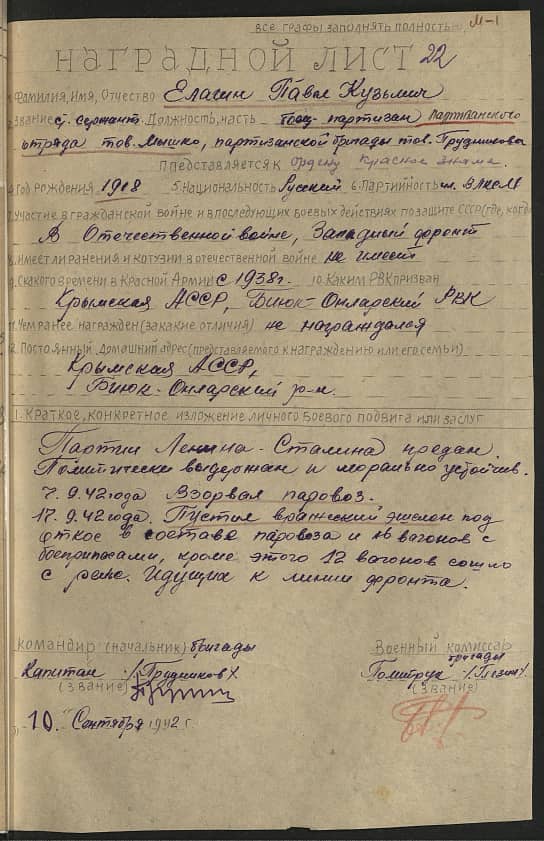 все графы заполнять полностью
М-1
НАГРАДНОЙ ЛИСТ 22
1. Фамилия, Имя, Отчество Елагин Павел Кузьмич
2. Звание ст. сержант. Должность, часть боец-партизан Партизанского
отряда тов. Мышко, партизанской бригады тов. Прудникова
Представляется к ордену Красное знамя.
4. Год рождения 1918 5. Национальность Русский 6. Партийность чл. ВЛКСМ
7. Участие в гражданской войне и в последующих боевых действиях по защите СССР (где, когда)
В Отечественной войне, Западный фронт
8. Имеет ли ранения и котузии в отечественной войне не имеет
9. С какого времени в Красной Армии с 1938г. 10. Каким РВК призван
Крымская АССР, Биюк-Онларский РВК
11. Чем ранее награжден (за какие отличия) не награждался
12. Постоянный домашний адрес (представляемого к награждению или его семьи)
Крымская АССР,
Биюк-Онларский р-н.
1. Краткое, конкретное изложение личного боевого подвига или заслуг
Партии Ленина-Сталина предан.
Политически выдержан и морально устойчив.
7. 9. 42 года Взорвал паровоз.
17. 9. 42 года. Пустил вражеский эшелон под
откос в составе паровоза и вагонов с
боеприпасами, кроме этого 12 вагонов сошло
с рельс. Идущих к линии фронта.
Командир (начальник) бригады
Военный комиссар
бригады
Капитан /Прудников/
Политрук
(Звание)
(Звание)
"10." Сентября 1942 г.